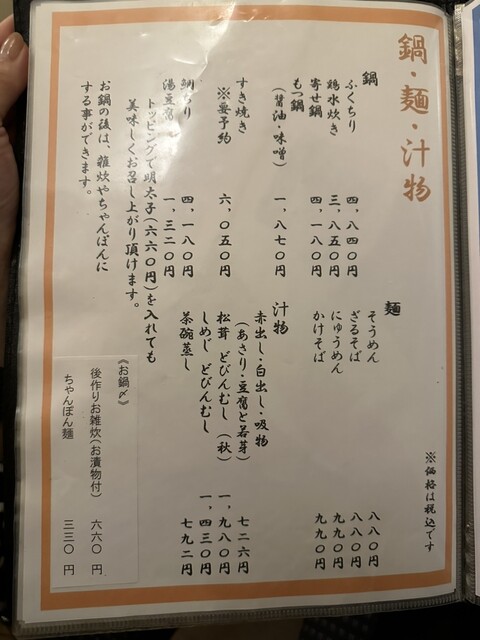 鍋・麺・汁物
鍋
ふくちり 四、八四〇円
鶏水炊き 三、八五〇円
寄せ鍋 四、一八〇円
もつ鍋
(醤油・味噌) 一、八七〇円
すき焼き 六、〇五〇円
※要予約
鯛ちり 四、一八〇円
湯豆腐 一、三二〇円
トッピングで明太子(六六〇円)を入れても
美味しくお召し上がり頂けます。
お鍋の後は、雑炊やちゃんぽんに
する事ができます。
麺
そうめん 八八〇円
ざるそば 八八〇円
にゅうめん 九九〇円
かけそば 九九〇円
汁物
赤出し・白出し・吸物
(あさり・豆腐と若芽) 七二六円
松茸 どびんむし (秋) 一、九八〇円
しめじ どびんむし 一、四三〇円
茶碗蒸し 七九二円
※価格は税込です
《お鍋〆》
後作りお雑炊(お漬物付) 六六〇円
ちゃんぽん麺 三三〇円